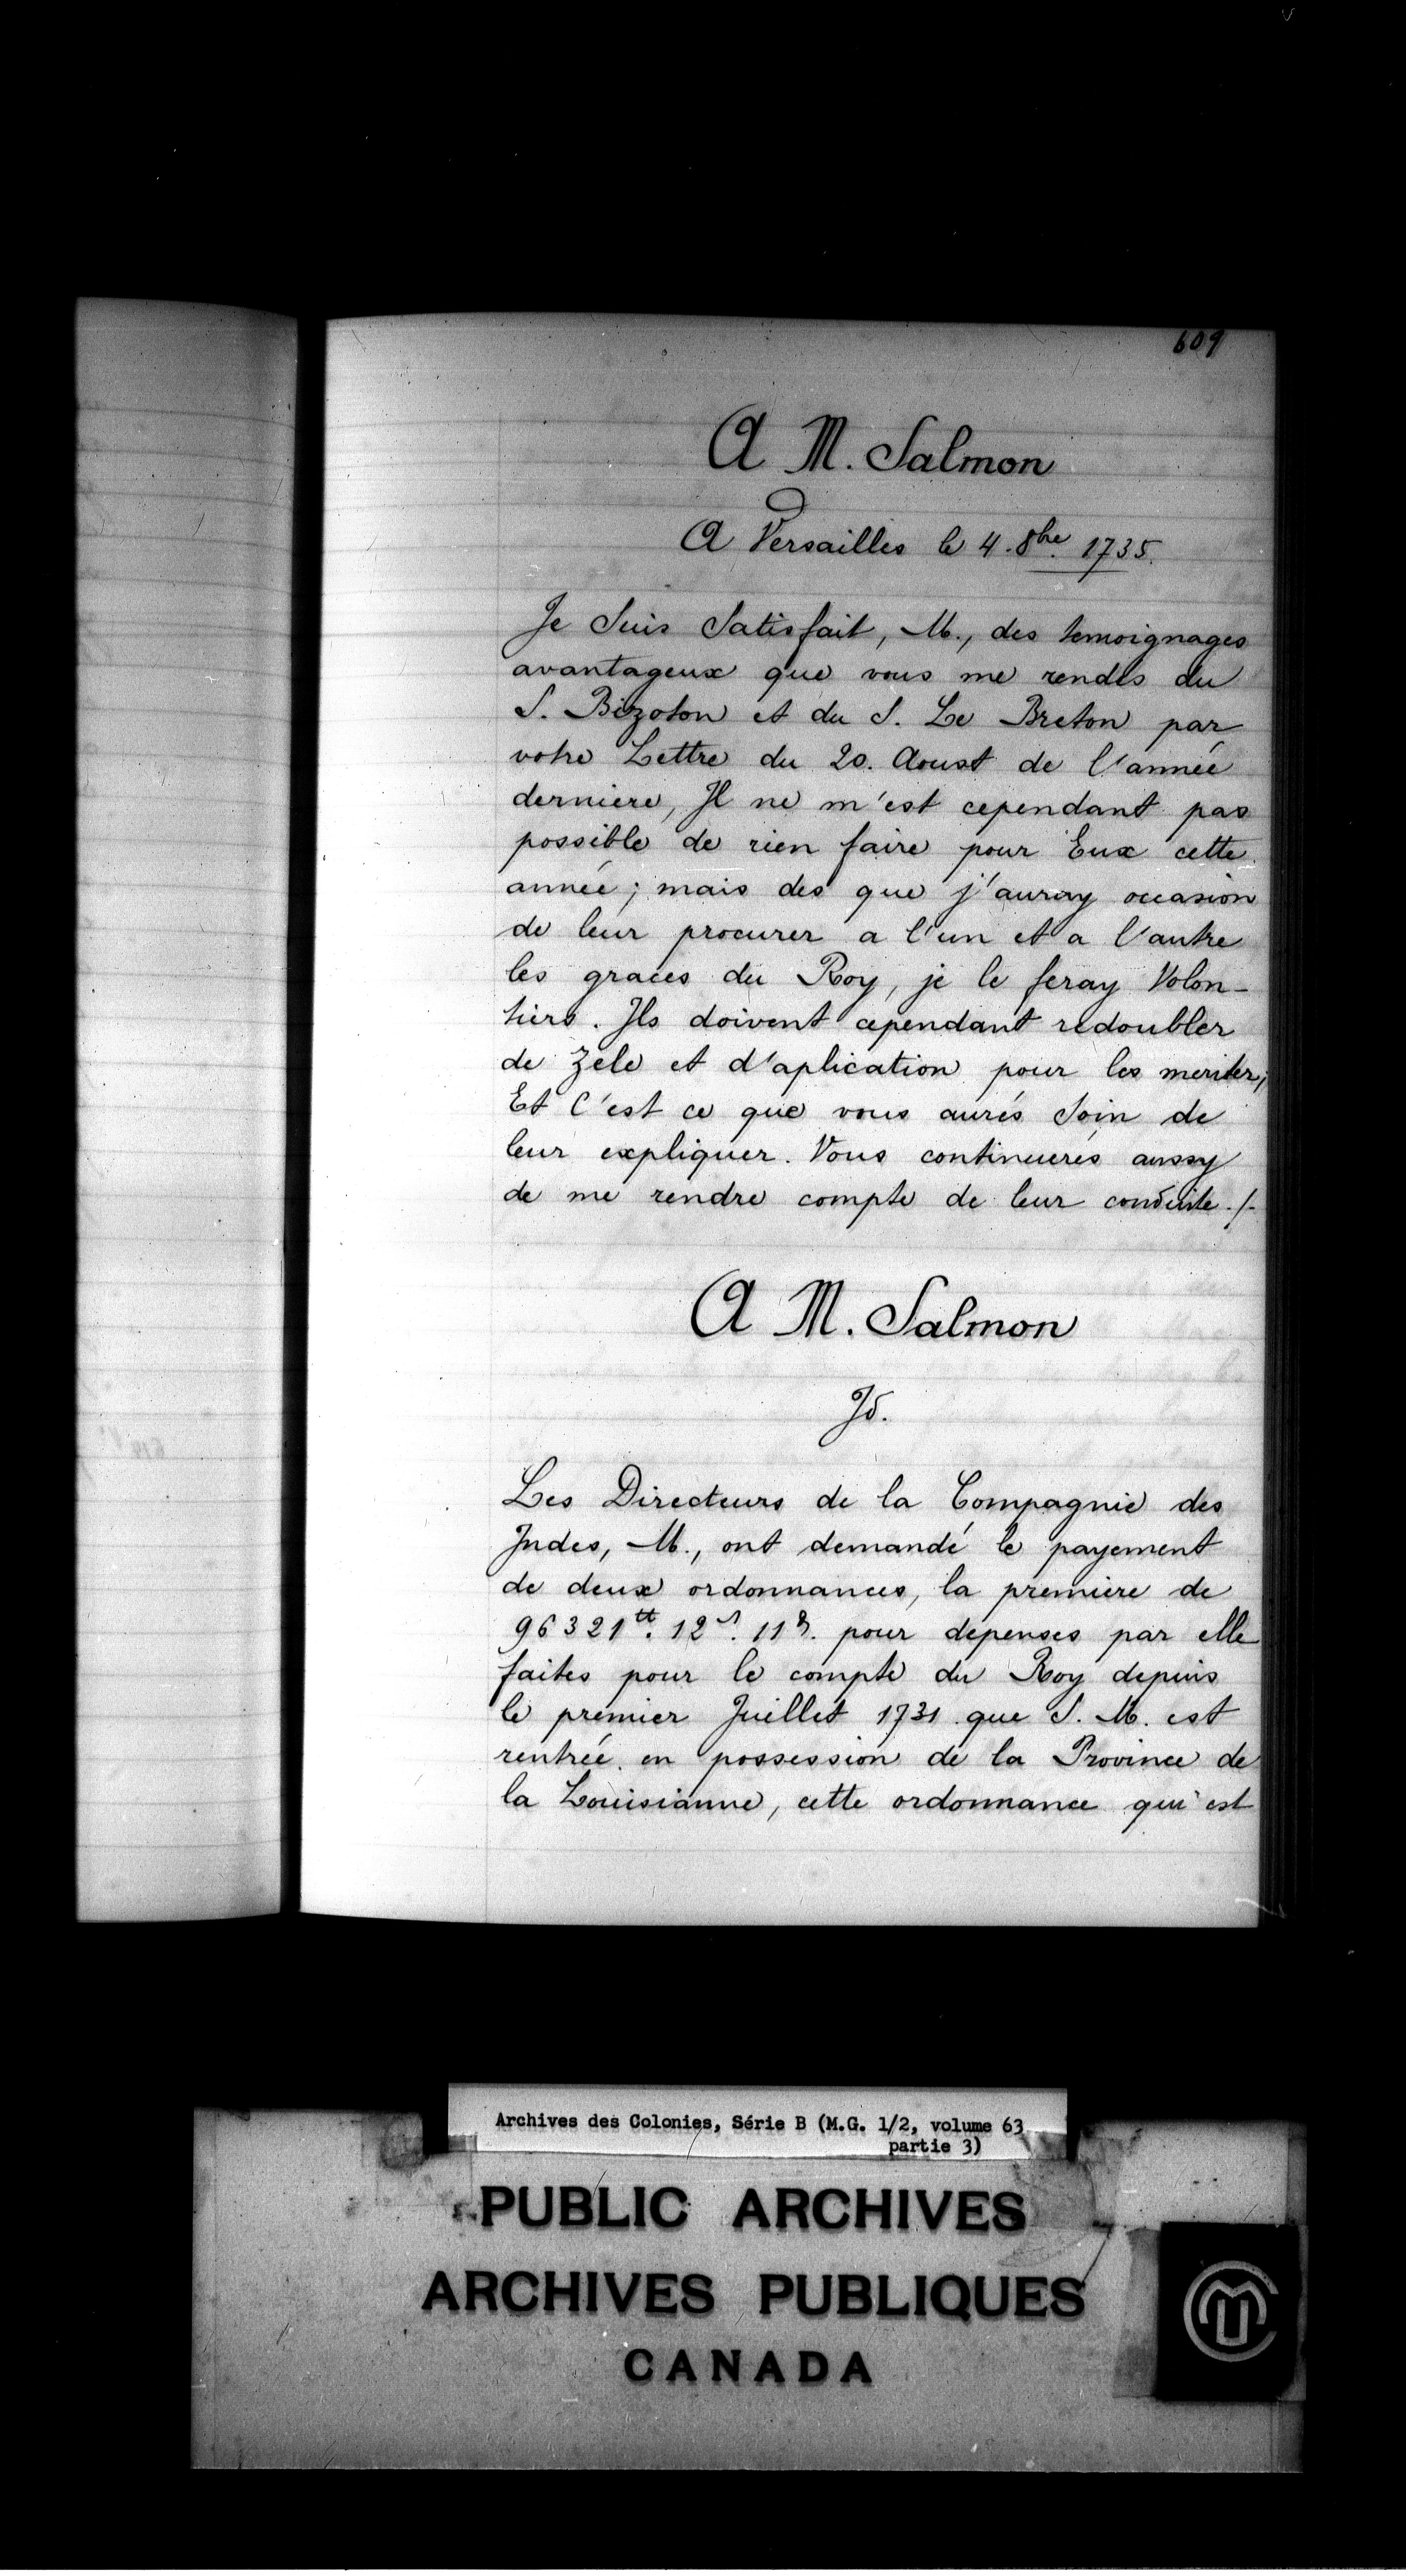 609
A M. Salmon
A Versailles le 4. 8bre. 1735.
Je Suis Satisfait, M., des temoignages
avantageux que vous me rendés du
S. Bizoton et du S. Le Breton par
votre Lettre du 20. Aoust de l'année
derniere, Il ne m'est cependant pas
possible de rien faire pour Eux cette
année; mais des que j'auray occasion
de leur procurer a l'un et a l'autre
les graces du Roy, je le feray Volon-
tiers. Ils doivent cependant redoubler
de Zele et d'aplication pour les meriter;
Et C'est ce que vous aurés Soin de
leur expliquer. Vous continuerés aussy
de me rendre compte de leur conduite ./.
A M. Salmon
Id.
Les Directeurs de la Compagnie des
Indes, M., ont demandé le payement
de deux ordonnances, la premiere de
96321tt. 12s. 11d. pour depenses par elle
faites pour le compte du Roy depuis
le premier Juillet 1731 que S. M. est
rentrée en possession de la Province de
la Louisianne, cette ordonnance qui est
Archives des Colonies, Série B (M.G. 1/2, volume 63
partie 3)
PUBLIC ARCHIVES
ARCHIVES PUBLIQUES
CANADA